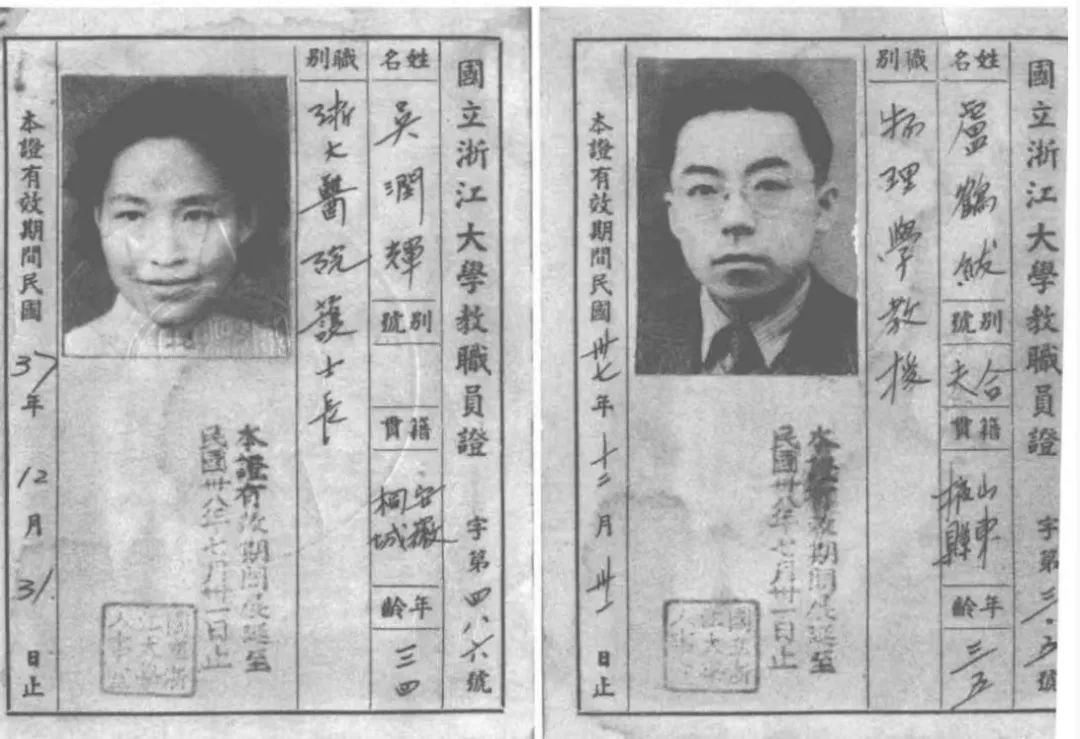 國立浙江大學教職員證 字第四八六號
姓名
吳潤輝
別號
籍貫
安徽
桐城
年齡
三四
職別
浙大醫院護士長
本證有效期間展延至
民國卅八年七月卅一日止
本證有效期間民國37年12月31日止
國立浙江大學教職員證 字第三〇五號
姓名
盧鶴紱
別號
合夫
籍貫
山東
掖縣
年齡
三五
職別
物理學教授
本證有效期間展延至
民國卅八年七月卅一日止
本證有效期間民國卅七年十二月卅一日止